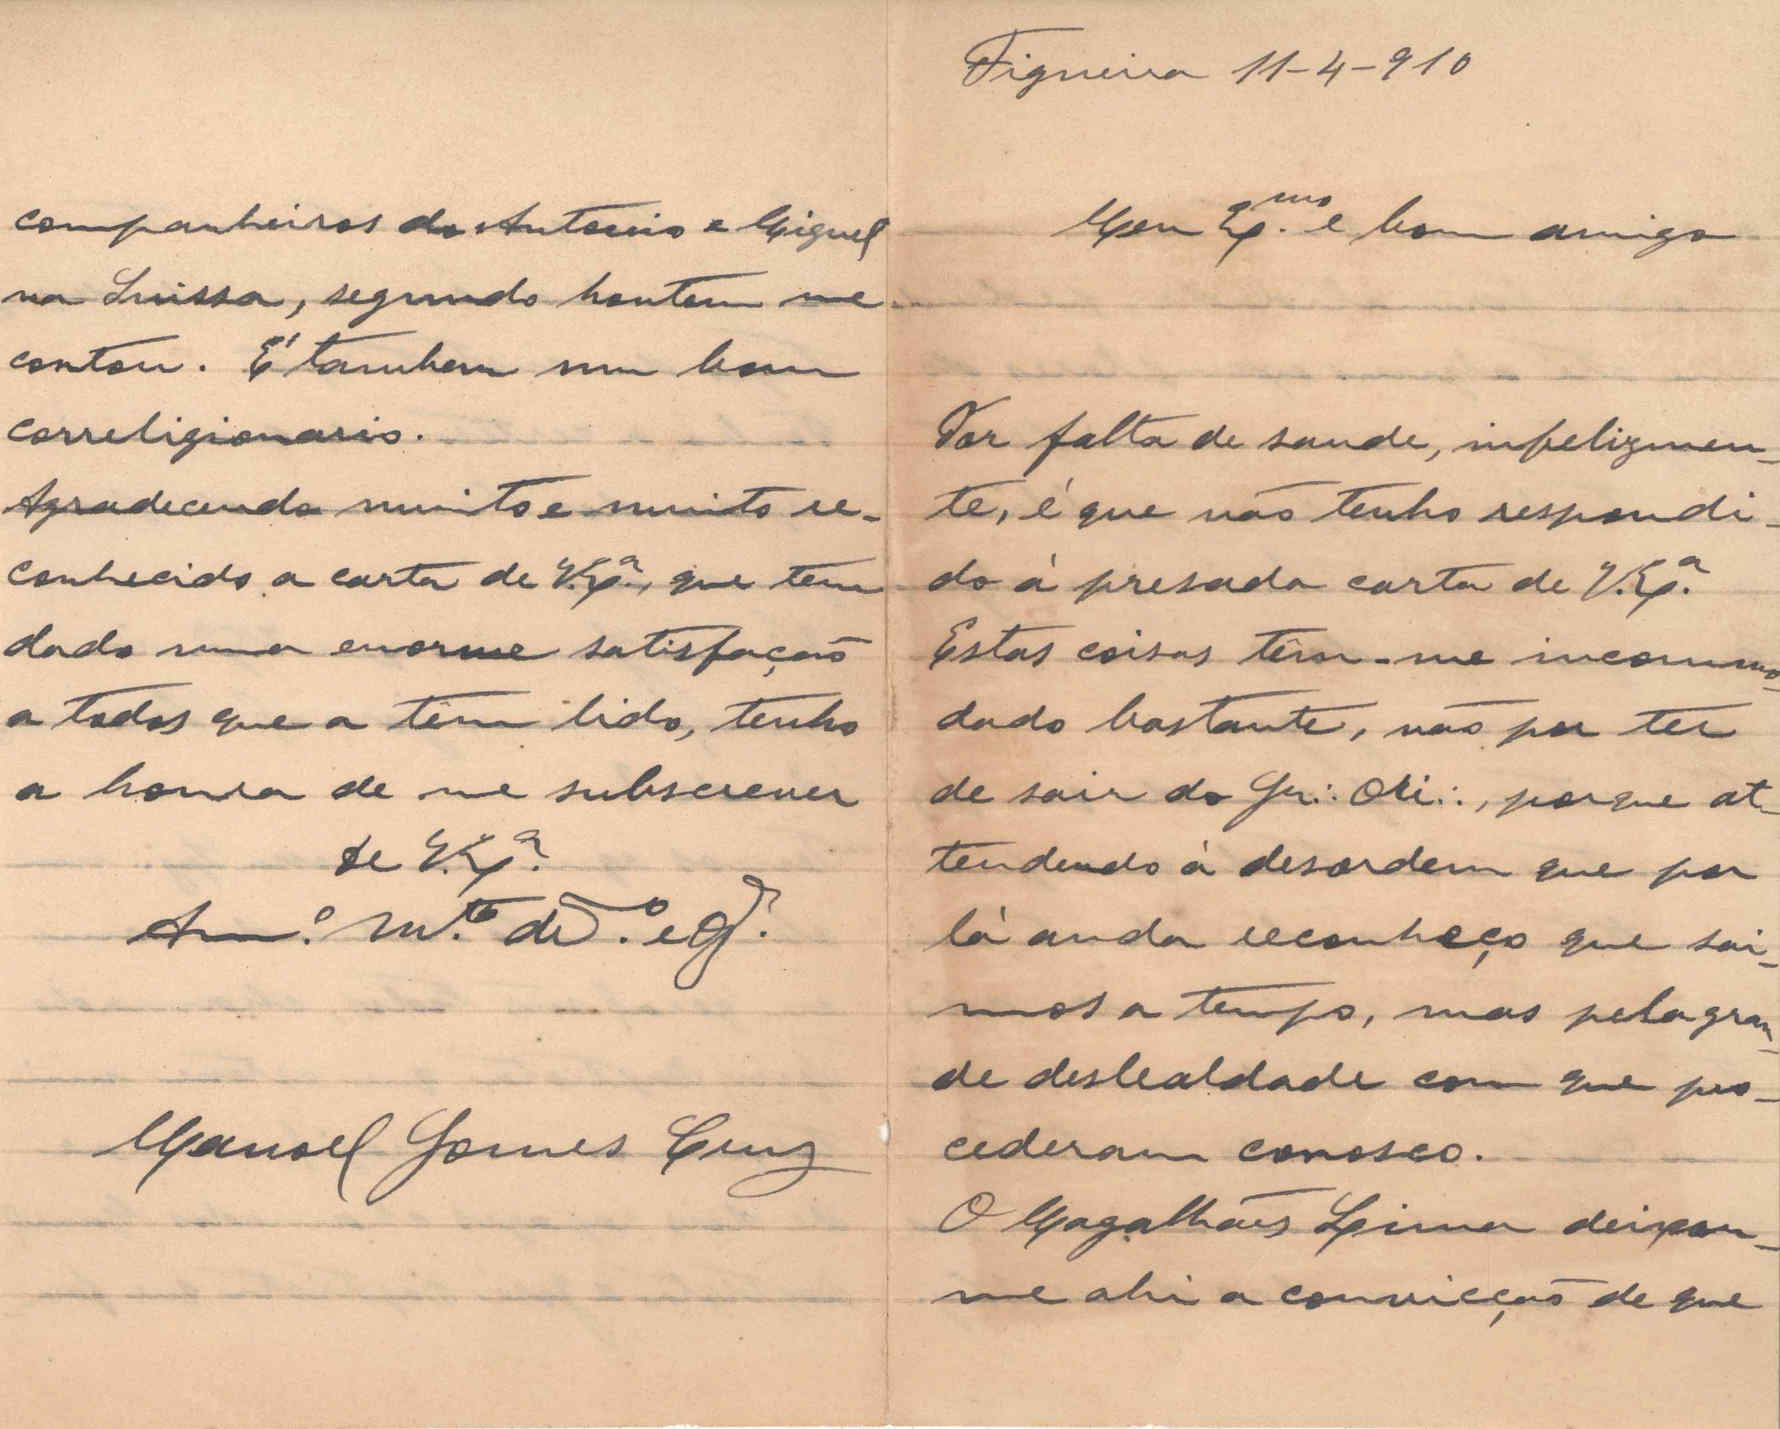 Figueira 11-4-910
Meu Ex.mo e bom amigo
Por falta de saude, infelizmen-
te, é que não tenho respondi-
do á presada carta de V. Ex.ª
Estas coisas têm-me incommo-
dado bastante, não por ter
de sair do Gr∴ Ori∴, porque at-
tendendo á desordem que por
lá anda reconheço que sai-
mos a tempo, mas pela gran-
de deslealdade com que pro-
cederam conosco.
O Magalhães Lima deixou-
me ahi a convicção de que
companheiros do Antonio e Miguel
na Suissa, segundo hontem me
contou. É tambem um bom
correligionario.
Agradecendo muito e muito re-
conhecido a carta de V. Ex.ª, que tem
dado uma enorme satisfação
a todos que a têm lido, tenho
a honra de me subscrever
de V. Ex.ª
Am.º M.to ded.º e
Manoel Gomes Cruz